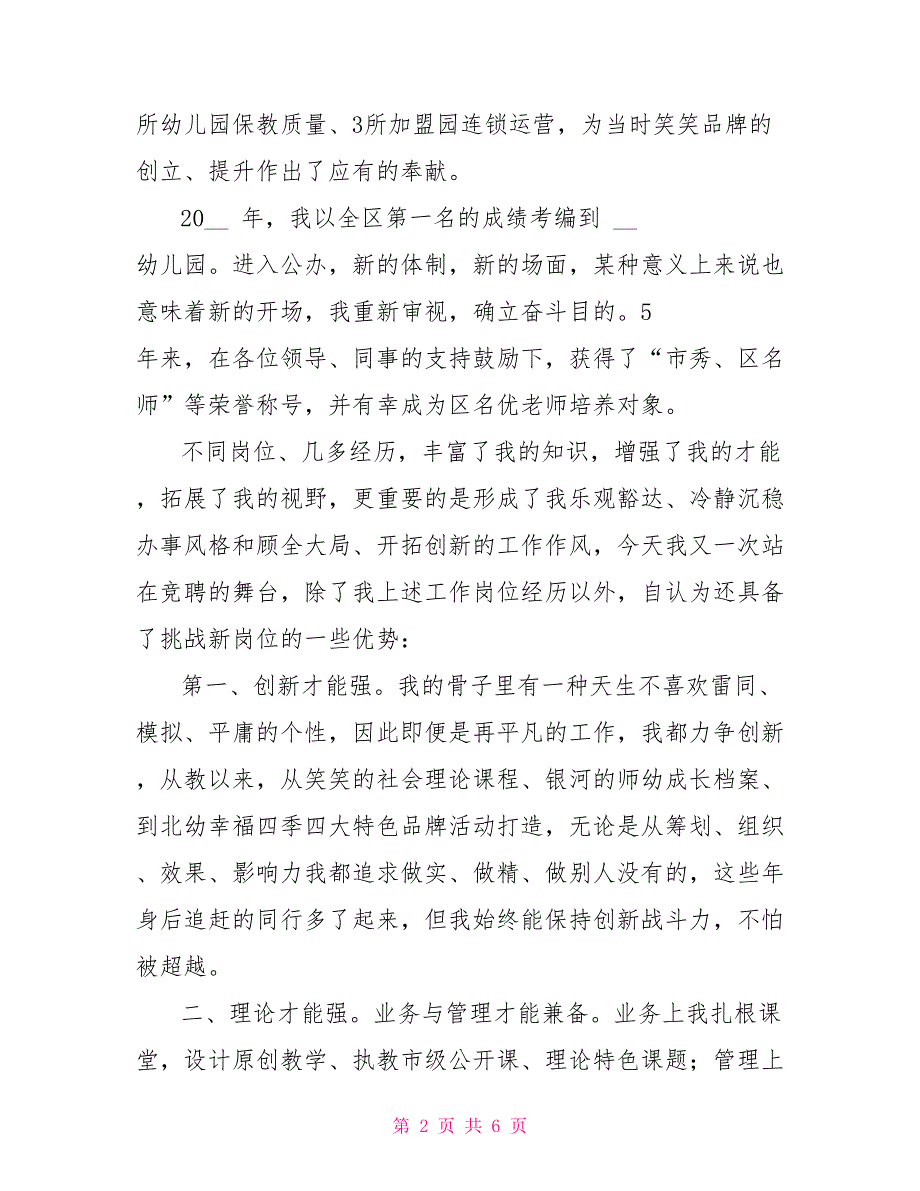 所幼儿园保教质量、3所加盟园连锁运营，为当时笑笑品牌的
创立、提升作出了应有的奉献。
20__ 年，我以全区第一名的成绩考编到 __
幼儿园。进入公办，新的体制，新的场面，某种意义上来说也
意味着新的开场，我重新审视，确立奋斗目的。5
年来，在各位领导、同事的支持鼓励下，获得了“市秀、区名
师”等荣誉称号，并有幸成为区名优老师培养对象。
不同岗位、几多经历，丰富了我的知识，增强了我的才能
，拓展了我的视野，更重要的是形成了我乐观豁达、冷静沉稳
办事风格和顾全大局、开拓创新的工作作风，今天我又一次站
在竞聘的舞台，除了我上述工作岗位经历以外，自认为还具备
了挑战新岗位的一些优势：
第一、创新才能强。我的骨子里有一种天生不喜欢雷同、
模拟、平庸的个性，因此即便是再平凡的工作，我都力争创新
，从教以来，从笑笑的社会理论课程、银河的师幼成长档案、
到北幼幸福四季四大特色品牌活动打造，无论是从筹划、组织
、效果、影响力我都追求做实、做精、做别人没有的，这些年
身后追赶的同行多了起来，但我始终能保持创新战斗力，不怕
被超越。
二、理论才能强。业务与管理才能兼备。业务上我扎根课
堂，设计原创教学、执教市级公开课、理论特色课题；管理上
第 2 页 共 6 页